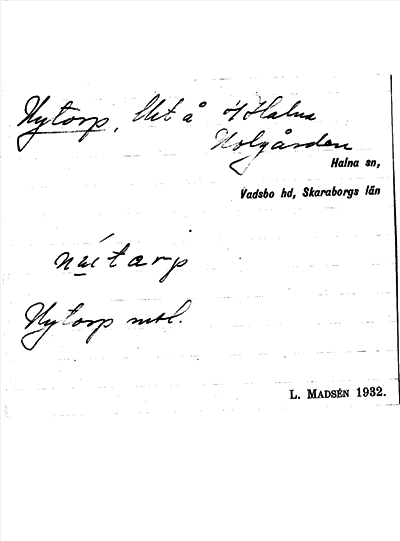 Nytorp, Ut å 4 Halna
Holgården
Halna sn,
Vadsbo hd, Skaraborgs län
Nytorp mtl.
L. MADSÉN 1932.